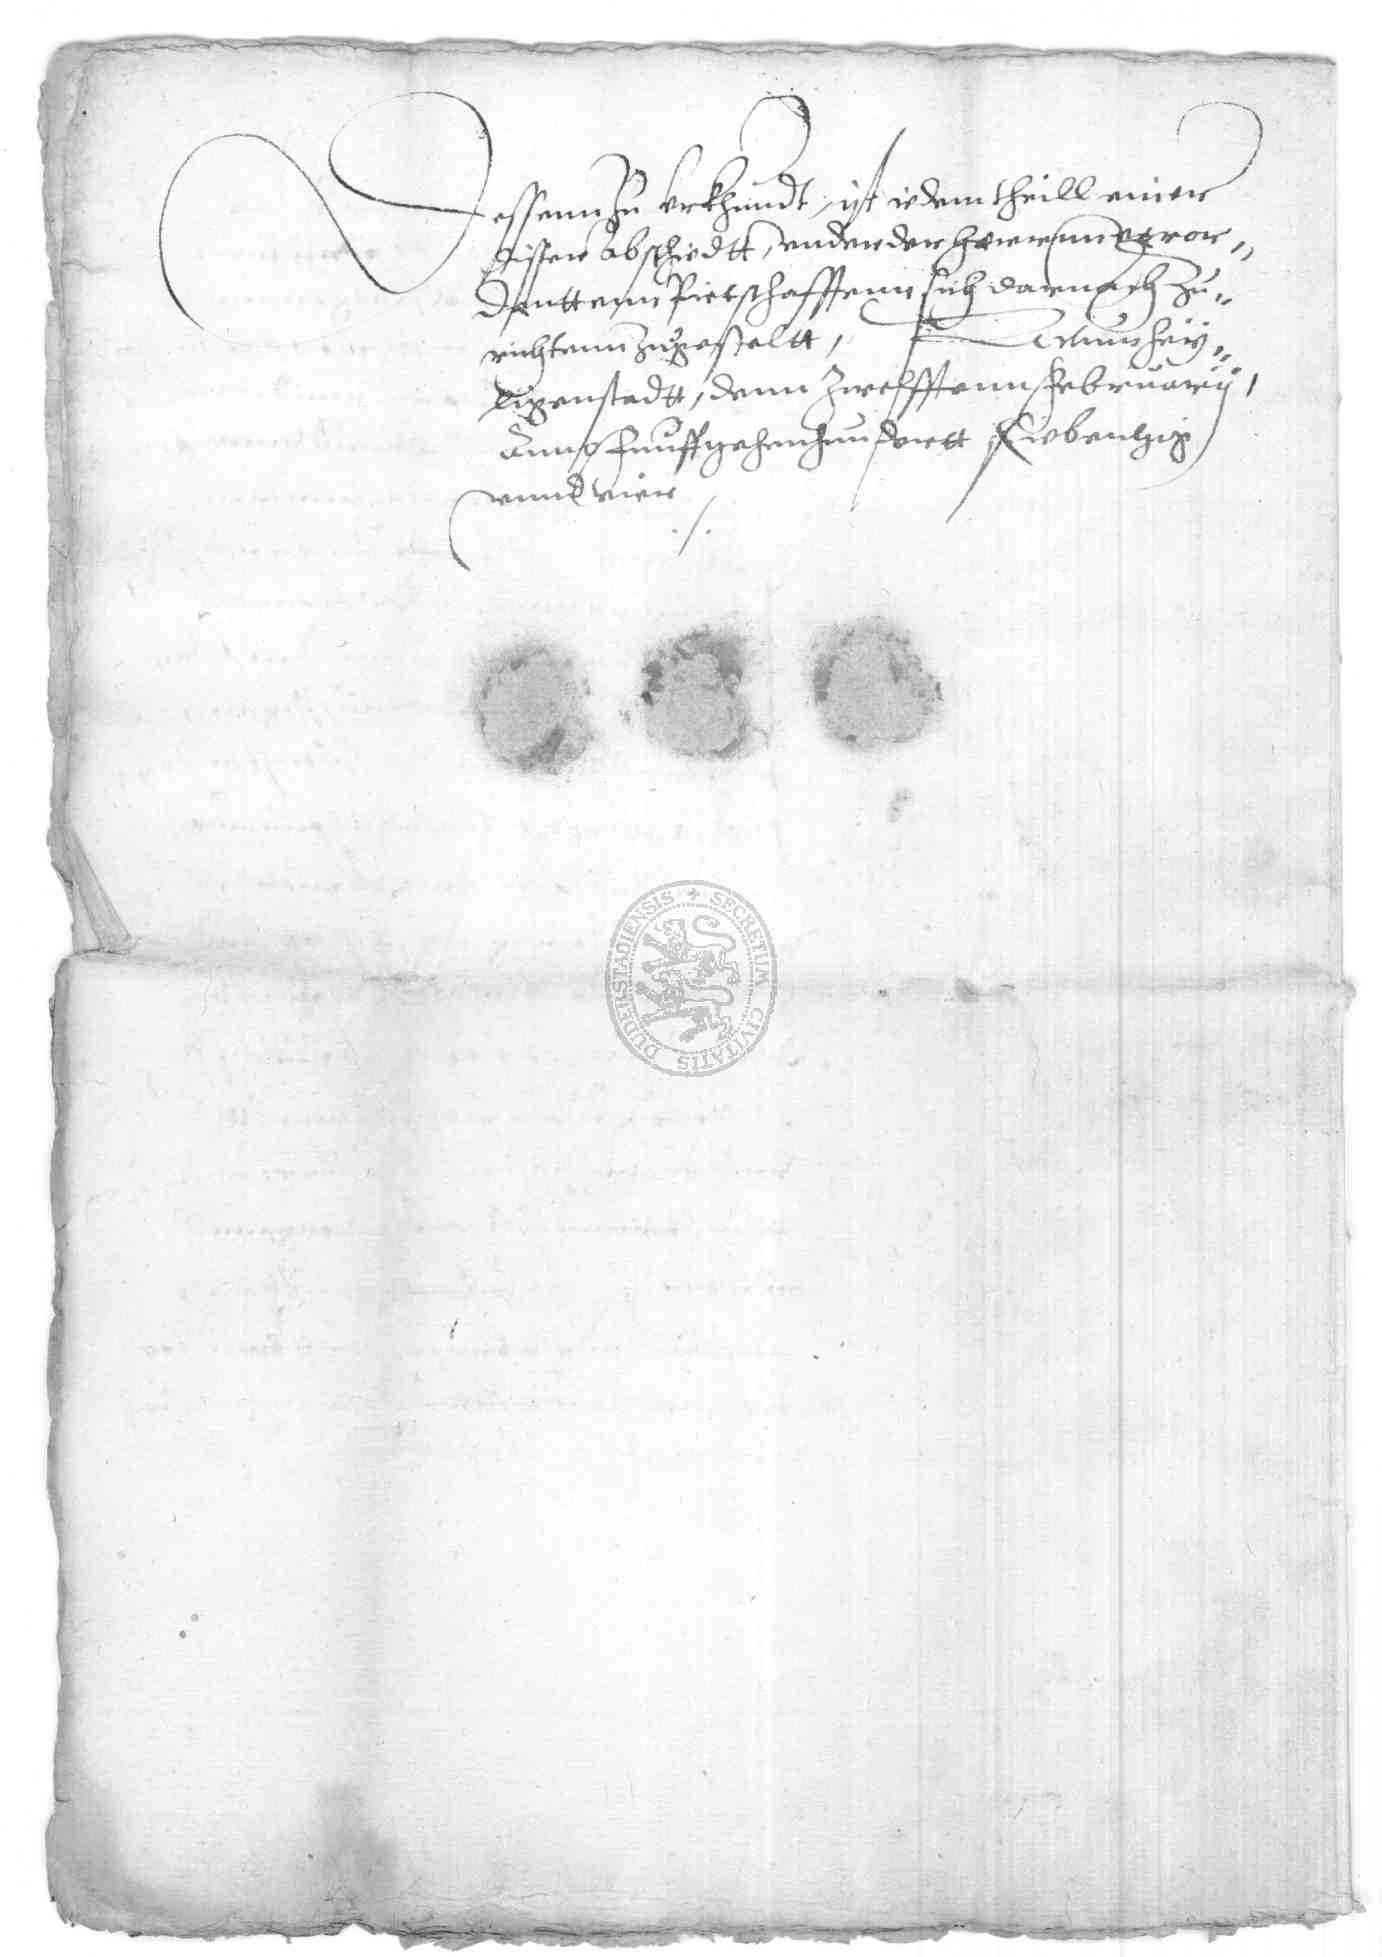 Dessenn zu urkhundt, ist iedem theill einer
disser abschiedt, under der herrenn veror„
denttenn Pietschafftenn sich darnach zu„
richtenn zugestaltt, Actum hey„
ligenstadtt, denn zwelfftenn Februarij,
Anno funffzehenhundertt siebentzig
unnd vier
./.
SECRETUM CIVITATIS DUDERSTADIENSIS